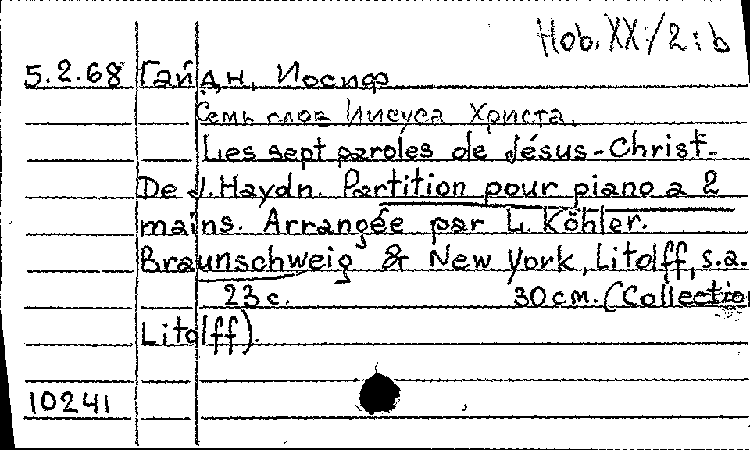 Hob. XX:/2:b
5.2.68 Гайдн, Иосиф
Семь слов Иисуса Христа.
Les sept paroles de Jésus-Christ.
De J. Haydn. Partition pour piano a 2
mains. Arrangée par L. Köhler.
Braunschweig & New York, Litolff, s.a.
23 c. 30 cm. (Collection
Litolff).
10241